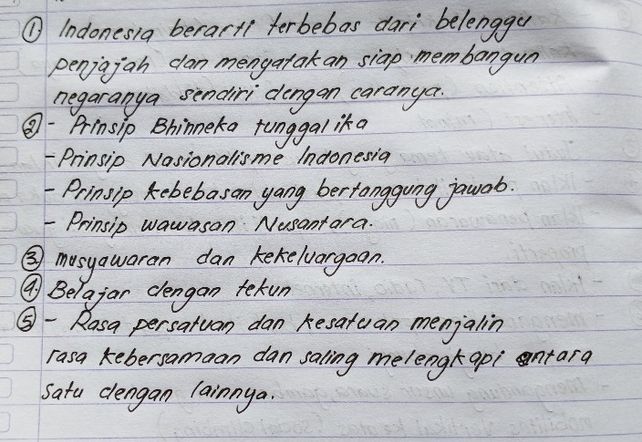 ① Indonesia berarti terbebas dari belenggu
penjajah dan menyatakan siap membangun
negaranya sendiri dengan caranya.
② - Prinsip Bhinneka tunggal ika
- Prinsip Nasionalisme Indonesia
- Prinsip kebebasan yang bertanggung jawab.
- Prinsip wawasan Nusantara.
③ musyawaran dan kekeluargaan.
④ Belajar dengan tekun
⑤ - Rasa persatuan dan kesatuan menjalin
rasa kebersamaan dan saling melengkapi antara
satu dengan lainnya.